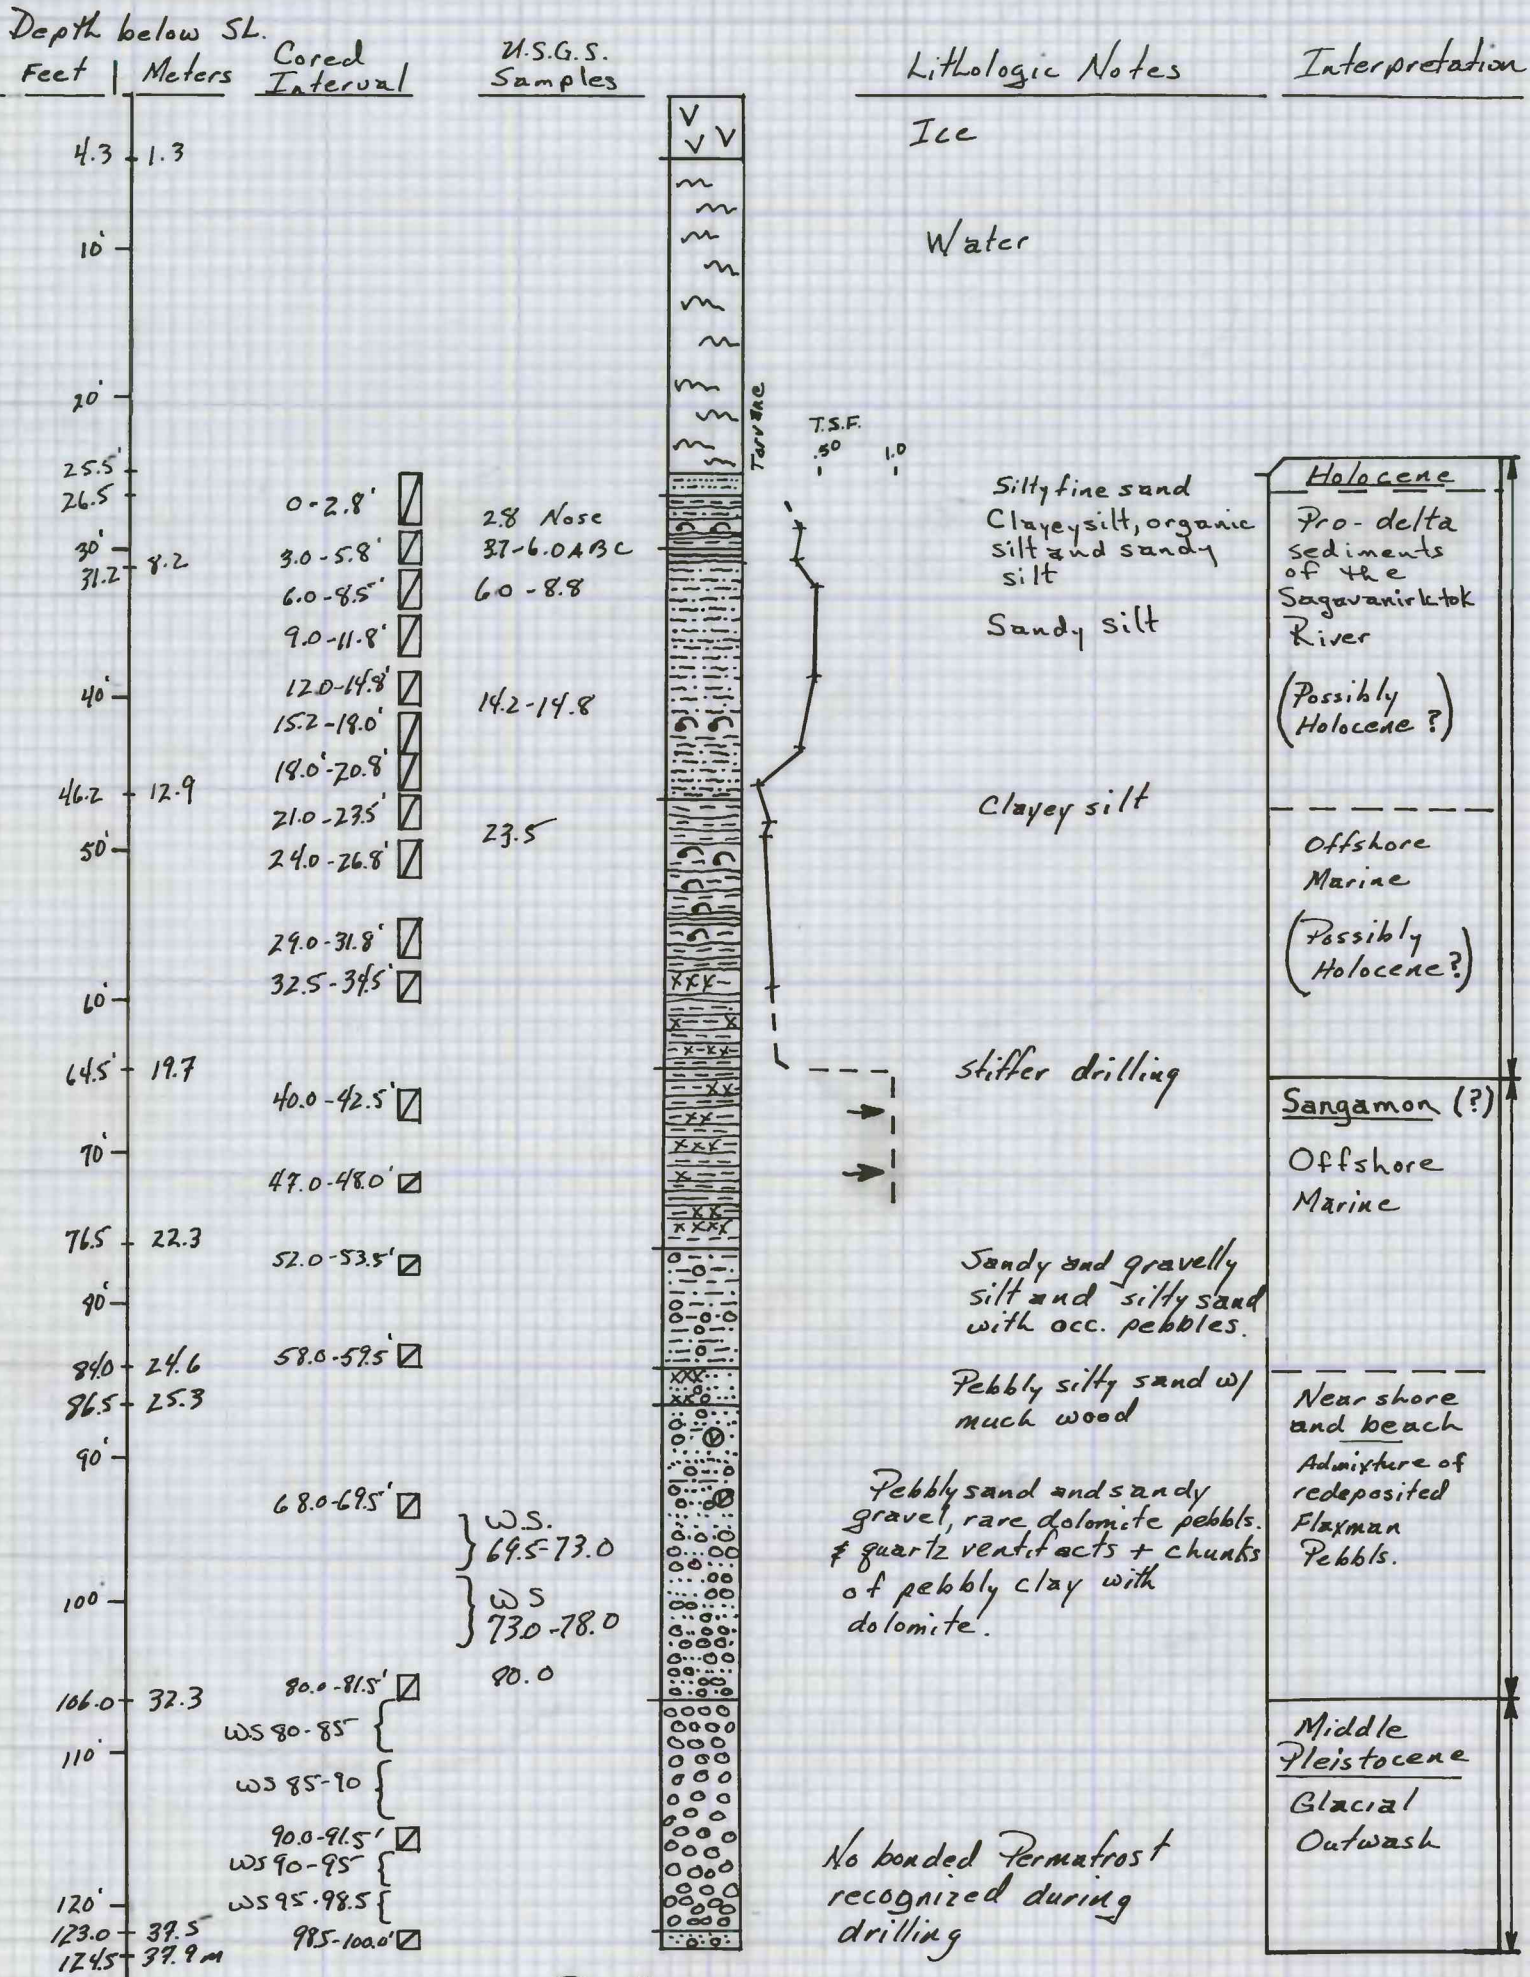 Depth below SL.
Feet | Meters
Cored
Interval
U.S.G.S.
Samples
Lithologic Notes
Interpretation
4.3 1.3
10'
20'
25.5'
26.5
30'
31.2 8.2
40'
46.2 12.9
50'
60'
64.5' 19.7
70'
76.5 22.3
80'
84.0 24.6
86.5 25.3
90'
100'
106.0 32.3
110'
120'
123.0 37.5
124.5 37.9 m
0-2.8'
3.0-5.8'
6.0-8.5'
9.0-11.8'
12.0-14.8'
15.2-18.0'
18.0'-20.8'
21.0-23.5'
24.0-26.8'
29.0-31.8'
32.5-34.5'
40.0-42.5'
47.0-48.0'
52.0-53.5'
58.0-59.5'
68.0-69.5'
80.0-81.5'
WS 80-85
WS 85-90
90.0-91.5'
WS 90-95
WS 95-98.5
98.5-100.0'
2.8 Nose
3.7-6.0 ABC
6.0-8.8
14.2-14.8
23.5
W.S.
69.5-73.0
WS
73.0-78.0
80.0
Torvane
T.S.F.
.50 1.0
Ice
Water
Silty fine sand
Clayey silt, organic
silt and sandy
silt
Sandy silt
Clayey silt
stiffer drilling
Sandy and gravelly
silt and silty sand
with occ. pebbles.
Pebbly silty sand w/
much wood
Pebbly sand and sandy
gravel, rare dolomite pebbls.
& quartz ventifacts + chunks
of pebbly clay with
dolomite.
No bonded Permafrost
recognized during
drilling
Holocene
Pro-delta
sediments
of the
Sagavanirktok
River
(Possibly
Holocene ?)
Offshore
Marine
(Possibly
Holocene?)
Sangamon (?)
Offshore
Marine
Near shore
and beach
Admixture of
redeposited
Flaxman
Pebbls.
Middle
Pleistocene
Glacial
Outwash